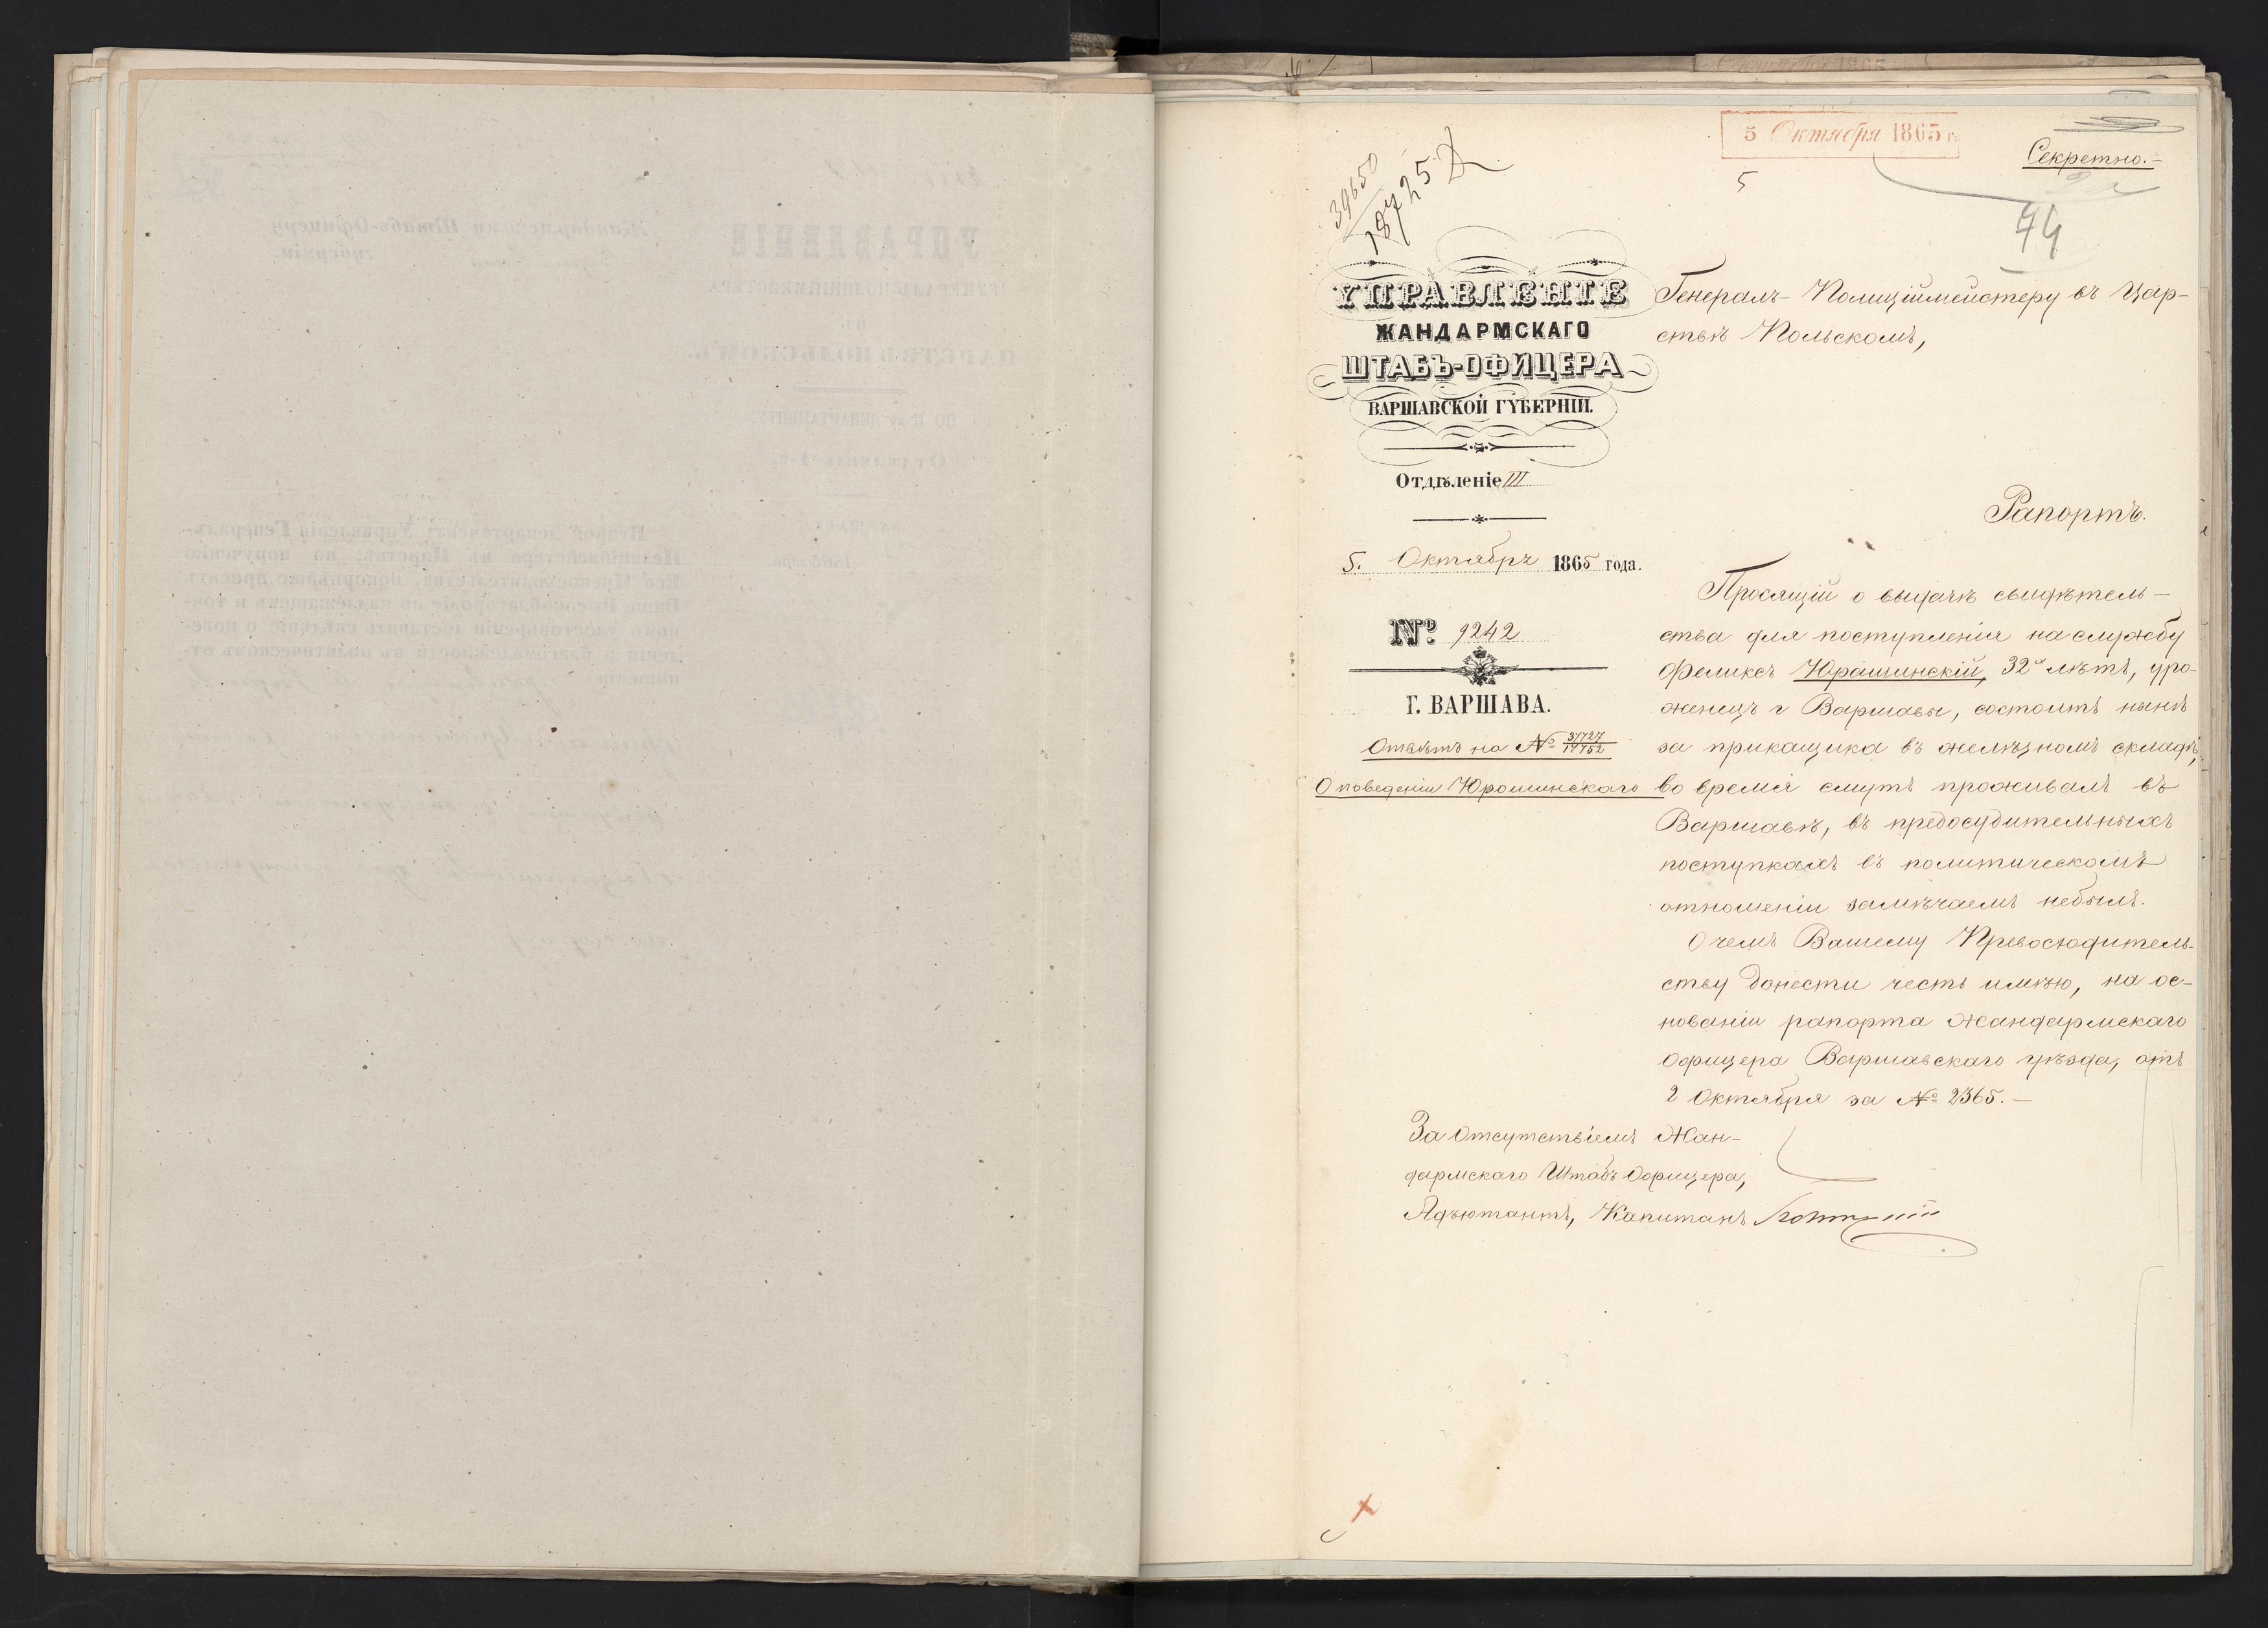 5 Октября 1865 г.
Секретно.—
39650
18725
5
94
УПРАВЛЕНІЕ
ЖАНДАРМСКАГО
ШТАБЪ-ОФИЦЕРА
ВАРШАВСКОЙ ГУБЕРНІИ.
Отдѣленіе III
5. Октября 1865 года.
№ 9242
Г. ВАРШАВА.
Отвѣтъ на № 37727/17752
О поведеніи Юрашинскаго
Генералъ-Полиціймейстеру въ Цар-
ствѣ Польскомъ,
Рапортъ.
Просящій о выдачѣ свидѣтель-
ства для поступленія на службу
Феликсъ Юрашинскій, 32х лѣтъ, уро-
женецъ г Варшавы, состоитъ нынѣ
за прикащика въ желѣзномъ складѣ,
во время смутъ проживалъ въ
Варшавѣ, въ предосудительныхъ
поступкахъ въ политическомъ
отношеніи замѣчаемъ небылъ.
О чемъ Вашему Превосходитель-
ству донести честь имѣю, на ос-
нованіи рапорта Жандармскаго
Офицера Варшавскаго уѣзда, отъ
2 Октября за № 2365.—
За Отсутствіемъ Жан-
дармскаго Штабъ Офицера,
Адъютантъ, Капитанъ